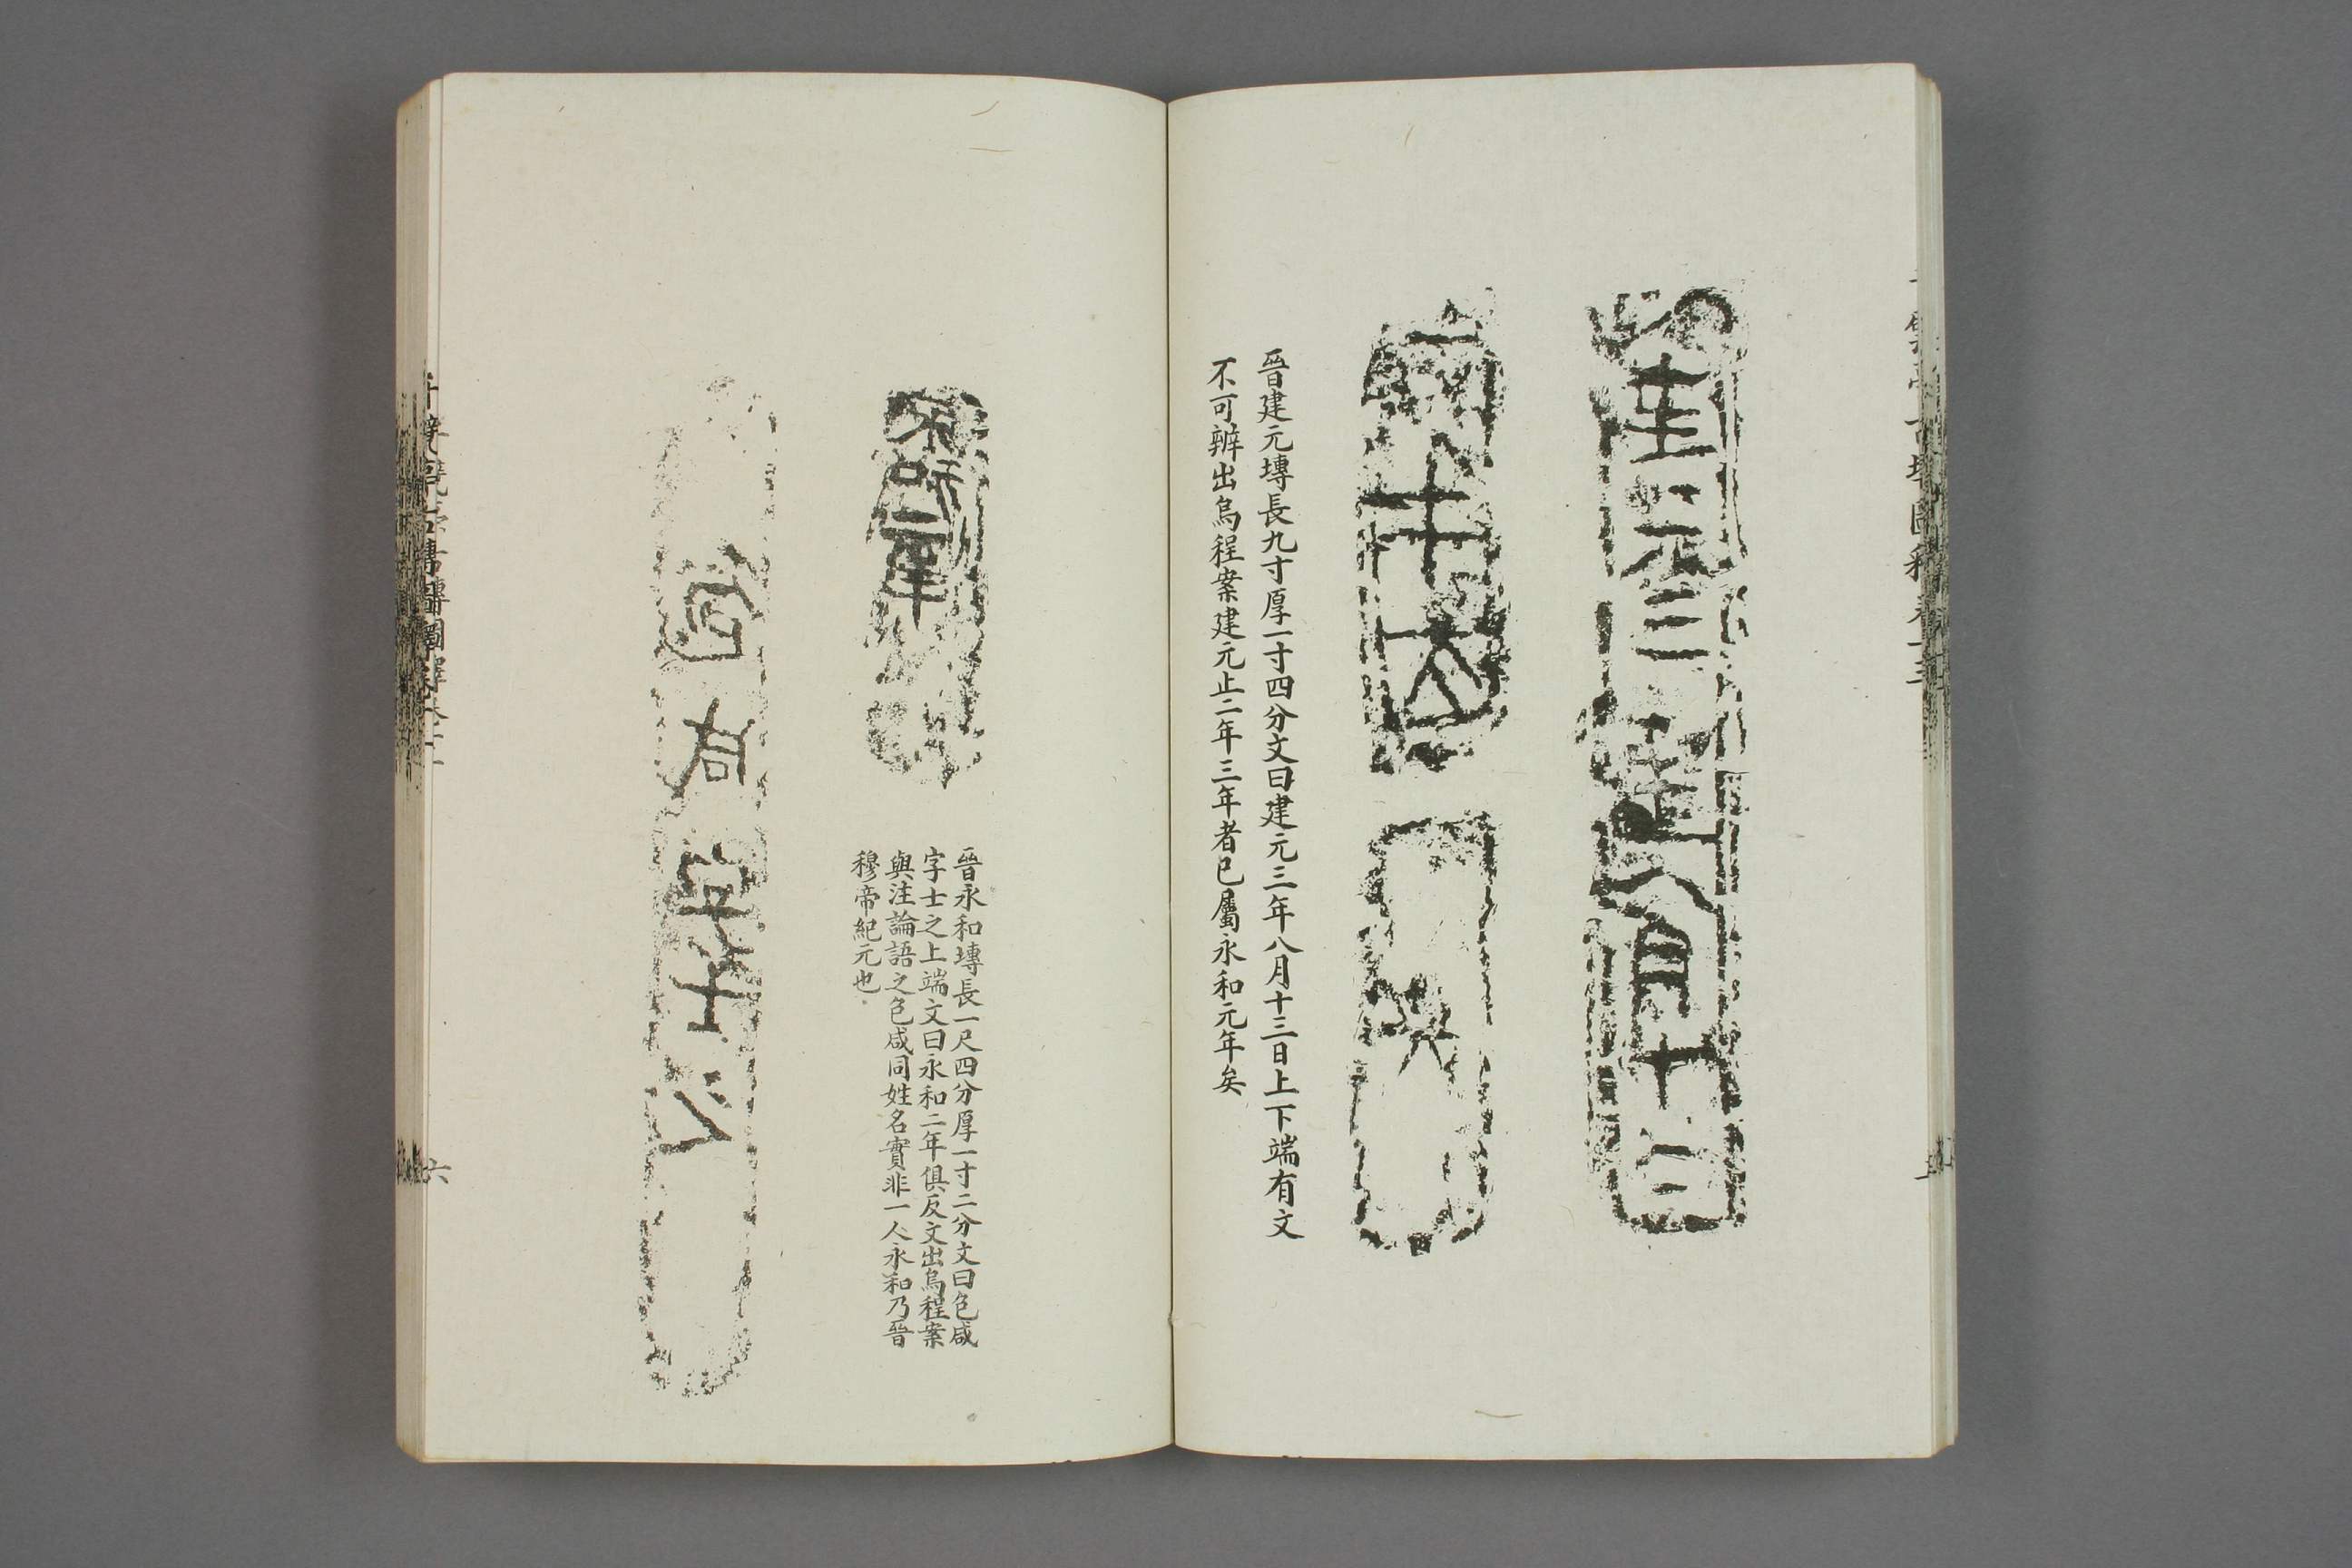 建元三年八月十三日
晉建元塼長九寸厚一寸四分文曰建元三年八月十三日上下端有文
不可辨出烏程案建元止二年三年者已屬永和元年矣
永和二年
晉永和塼長一尺四分厚一寸二分文曰包咸
字士之上端文曰永和二年俱反文出烏程案
與注論語之包咸同姓名實非一人永和乃晉
穆帝紀元也
包咸字士之
千甓亭古塼圖釋卷十
六